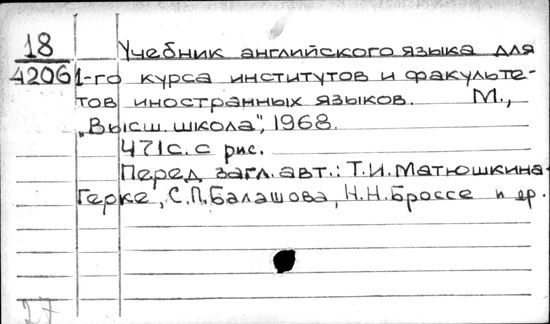 18 Учебник английского языка для
4206 1-го курса институтов и факульте-
тов иностранных языков. М.,
„Высш. школа", 1968.
471с. с рис.
Перед загл. авт.: Т.И.Матюшкина-
Герке, С.П.Балашова, Н.Н.Броссе и др.
27